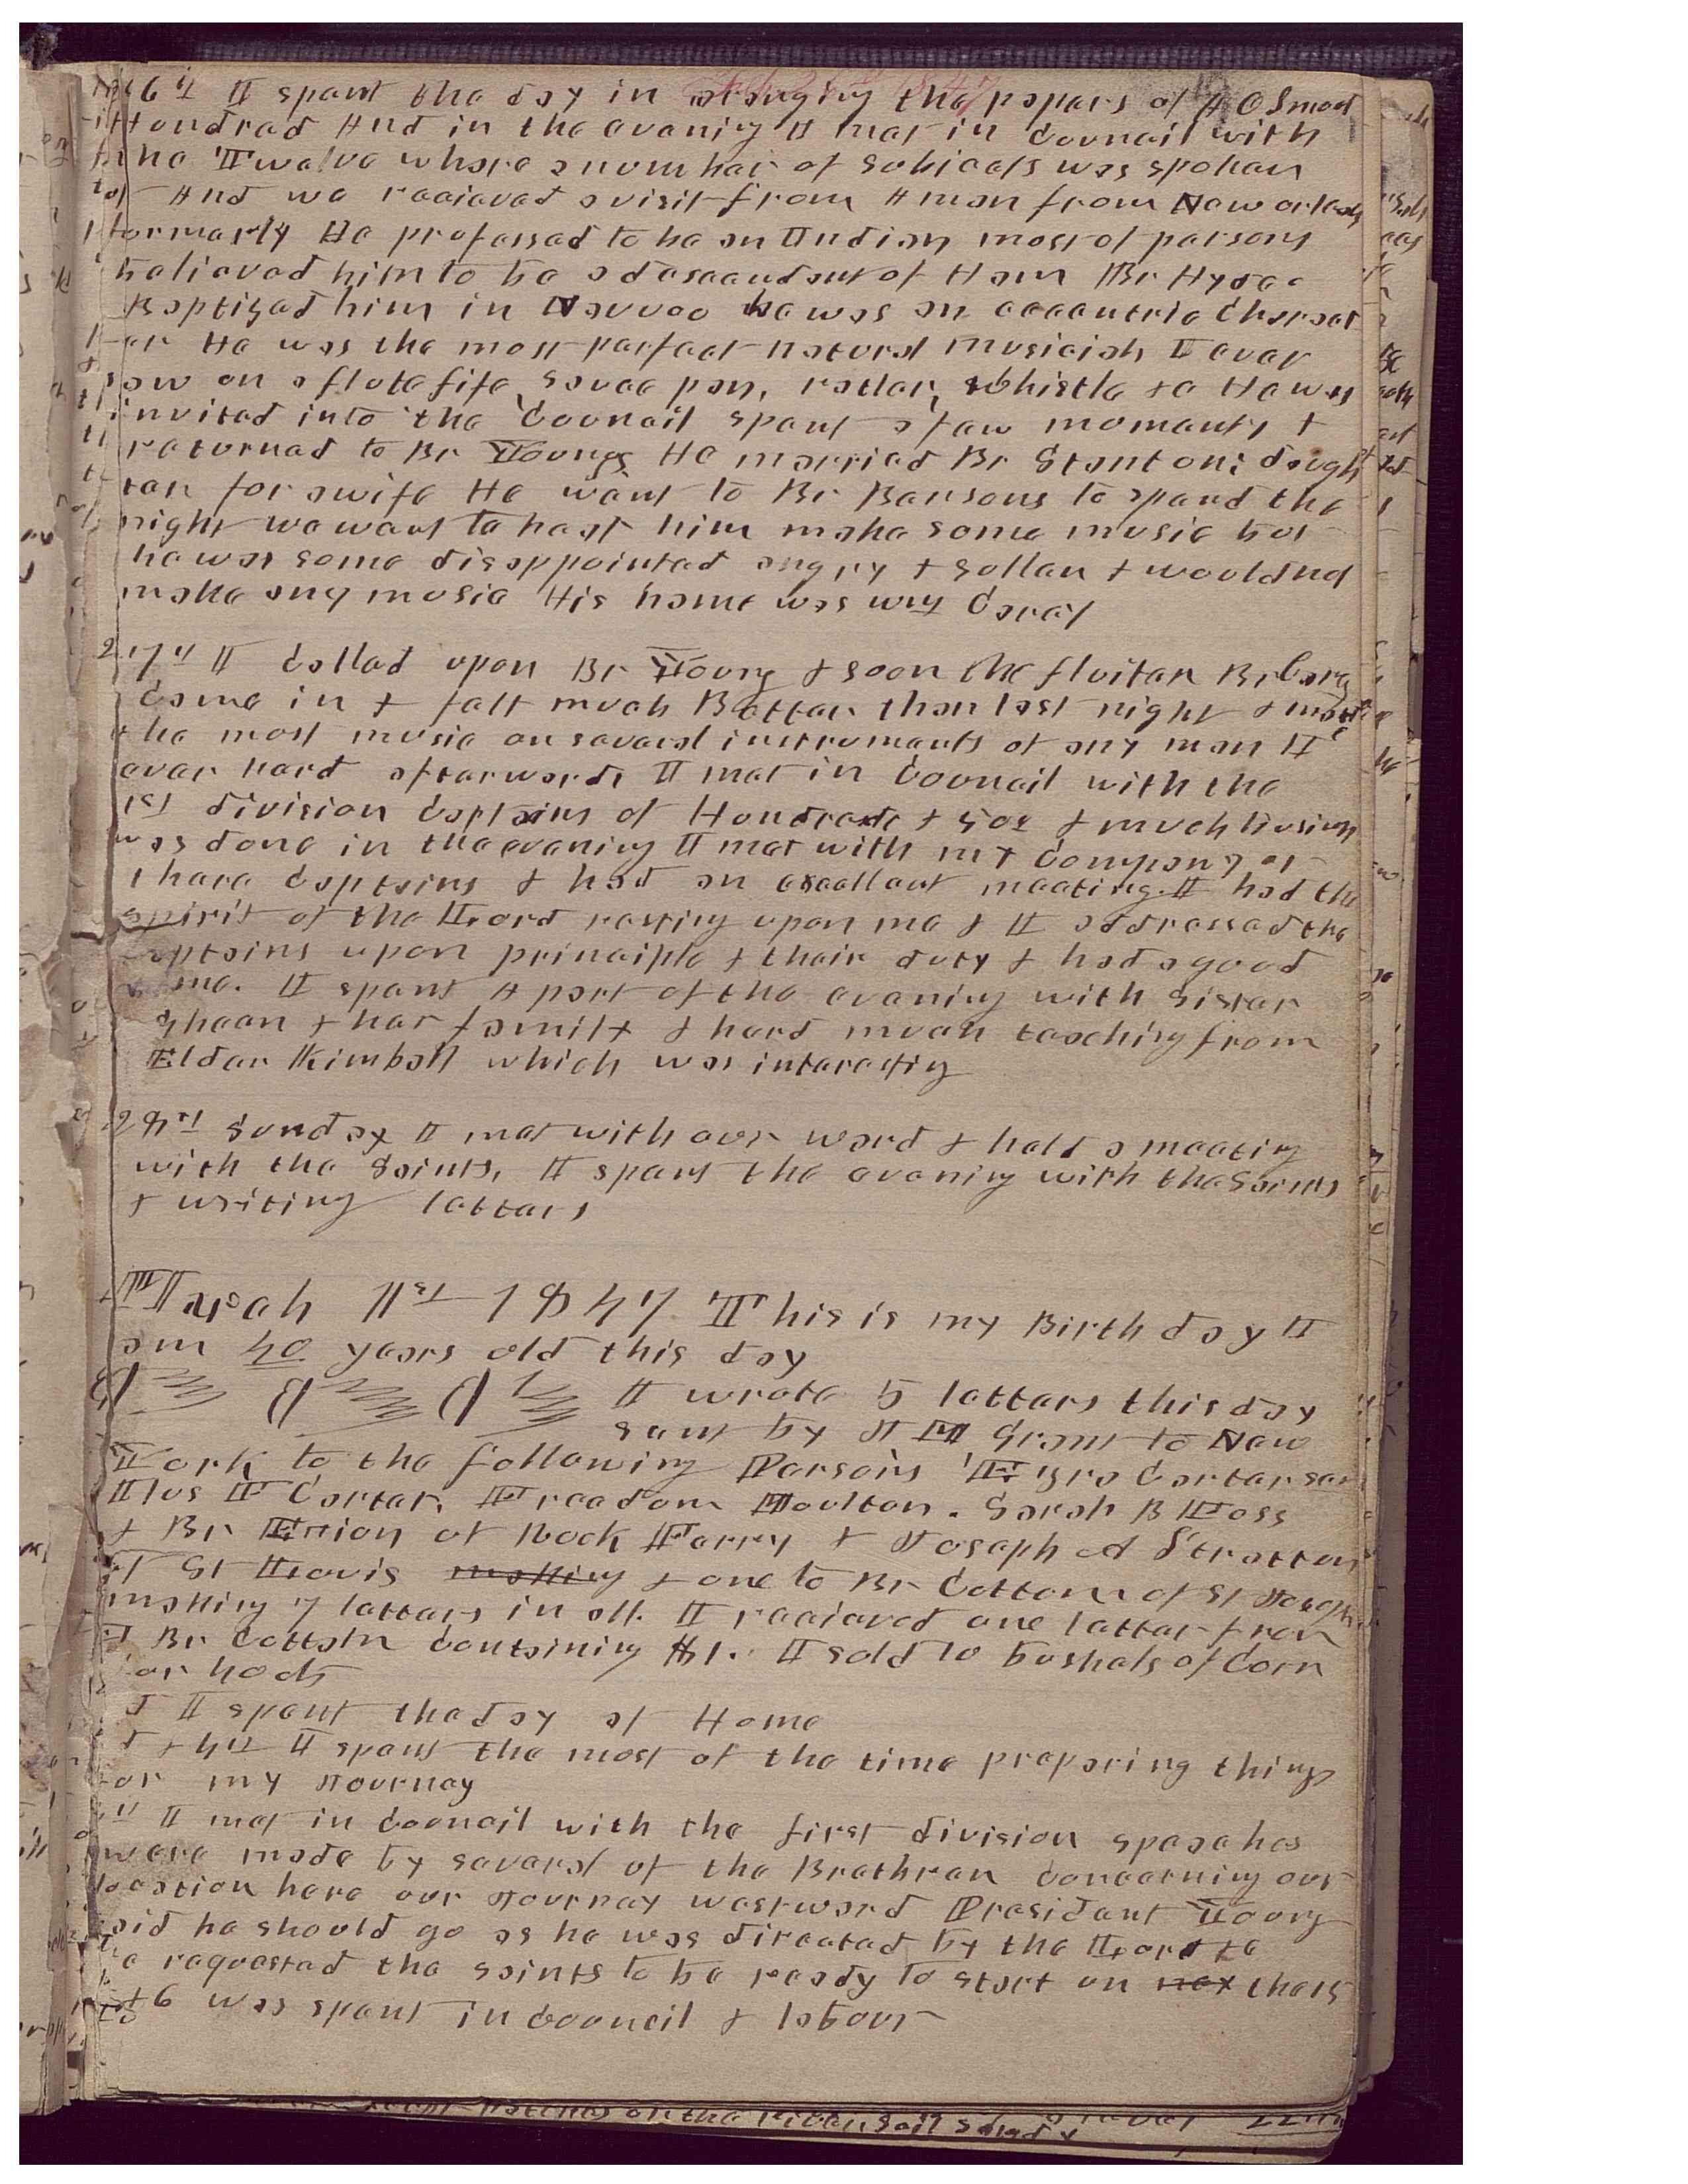 26th I spent the day in arranging the papers of A O Smoot
Hundred And in the evening I met in Council with
the Twelve where a number of subjects was spoken
of And we received a visit from A man from New orleans
formerly He professed to be an Indian most of persons
believed him to be a desceendent of Ham Br Hyde
Baptized him in Nauvoo he was an eccentric Charact
er He was the most perfect natural musician I ever
saw on a flute fife, sauce pan, ratler, whistle &c He was
invited into the Council spent a few moments &
returned to Br Youngs He married Br Stantons daugh
ter for a wife He went to Br Bensons to spend the
night we went to hear him make some music but
he was some disappointed angry & sullen & would not
make any music His name was Wm Carey
27th I Called upon Br Young & soon the fluiter Br Carey
came in & felt much Better than last night & made
the most music on several instruments of any man I
ever hard afterwards I met in Council with the
1st division Captains of Hundreds & 50s & much business
was done in the evening I met with my Company of
there Captains & had an excellent meeting. I had the
spirit of the Lord resting upon me & I addressed the
Captains upon principle & their duty & had a good
time. I spent A part of the evening with Sister
& her family & hard much teaching from
Elder Kimball which was interesting
28th Sunday I met with our ward & held a meeting
with the Saints, I spent the evening with the Saints
& writing letters
March 1st 1847 This is my Birth day I
am 40 years old this day
I wrote 5 letters this day
sent by J M Grant to New
York to the following Persons Ezra Carter sen
Ilus F Carter, Freedom Moulton. Sarah B Foss
& Br Erion of Rock Ferry & Joseph A Stratton
at St Louis making & one to Br Cottom of St Joseph
making 7 letters in all. I received one letter from
Br Cottom Containing $1. I sold 10 bushels of Corn
for 40 cts
d I spent the day at Home
d & 4th I spent the most of the time preparing things
for my Journey
I met in Council with the first division speaches
were made by several of the Brethren concerning our
location here our Journey westward President Young
said he should go as he was directed by the Lord &c
he requested the saints to be ready to start on nex thers
6 was spent in Council & labour